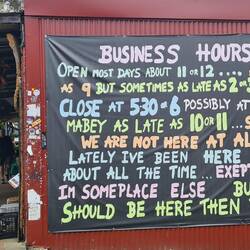 BUSINESS HOURS
OPEN MOST DAYS ABOUT 11 OR 12....
AS 9 BUT SOMETIMES AS LATE AS 2-
CLOSE AT 5:30-6 POSSIBLY AT
MABEY AS LATE AS 10 OR 11... S
WE ARE NOT HERE AT AL
LATELY IVE BEEN HERE
ABOUT ALL THE TIME... EXEPT
IM SOMEPLACE ELSE BU
SHOULD BE HERE THEN